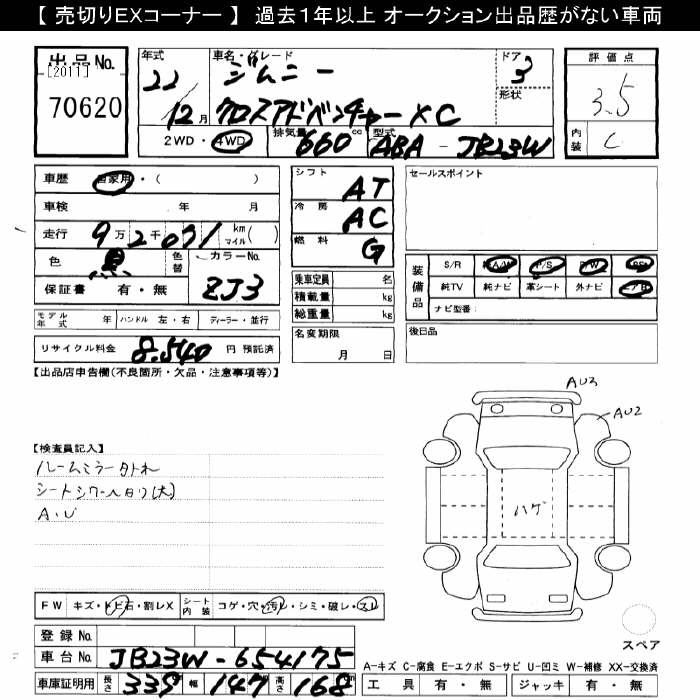 【 売切りEXコーナー 】 過去1年以上 オークション出品歴がない車両
出品No.
[2011]
70620
年式
22
12月
車名・グレード
ジムニー
クロスアドベンチャーXC
ドア
3
形状
2WD・4WD
排気量
660 cc
型式
ABA-JB23W
評価点
3.5
内装
C
車歴 自家用・( )
車検 年 月
走行 9万2千071 km マイル( )
色 黒 色替
カラーNo.
ZJ3
保証書 有・無
モデル年式 年 ハンドル 左・右 ディーラー・並行
リサイクル料金 8.540 円 預託済
シフト AT
冷房 AC
燃料 G
乗車定員 名
積載量 kg
総重量 kg
名変期限
月 日
セールスポイント
装備品
S/R 純A/W P/S P/W ABS
純TV 純ナビ 革シート 外ナビ エアB
ナビ型番:
後日品
【出品店申告欄(不良箇所・欠品・注意事項等)】
【検査員記入】
ルームミラー外れ
A.U
AU3
AU2
ハゲ
FW キズ・トビ石・割レX シート内装 コゲ・穴・汚レ・シミ・破レ・スレ
登録No.
車台No. JB23W-654175
車庫証明用 長さ 339 幅 147 高さ 168
スペア
A-キズ C-腐食 E-エクボ S-サビ U-凹ミ W-補修 XX-交換済
工具 有・無 ジャッキ 有・無